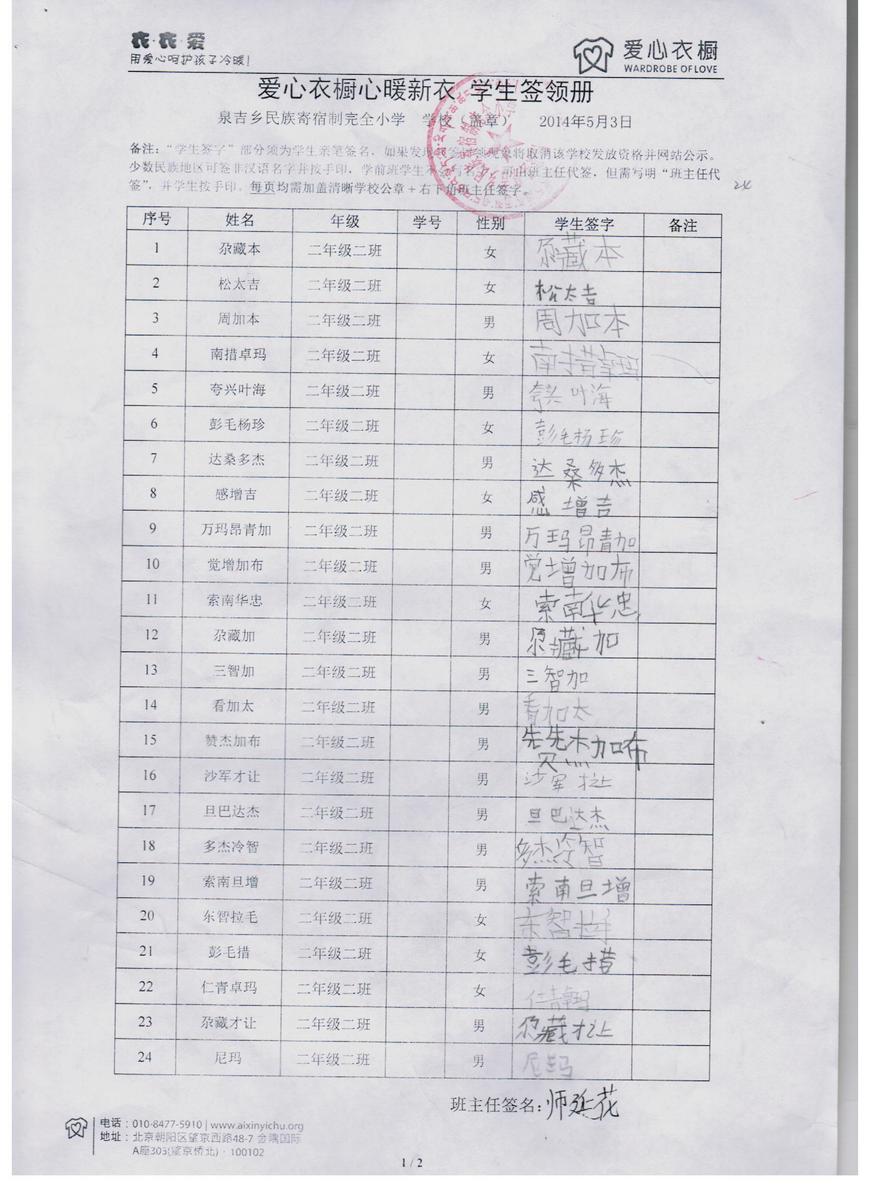 衣·衣·爱
用爱心呵护孩子冷暖!
爱心衣橱
WARDROBE OF LOVE
爱心衣橱心暖新衣 学生签领册
泉吉乡民族寄宿制完全小学 学校（盖章） 2014年5月3日
备注："学生签字"部分须为学生亲笔签名，如果发现 现象将取消该学校发放资格并网站公示。
少数民族地区可签非汉语名字并按手印，学前班学生 名 可由班主任代签，但需写明"班主任代
签"，并学生按手印。每页均需加盖清晰学校公章+右下角班主任签字。
24
序号 姓名 年级 学号 性别 学生签字 备注
1 尕藏本 二年级二班 女 尕藏本
2 松太吉 二年级二班 女 松太吉
3 周加本 二年级二班 男 周加本
4 南措卓玛 二年级二班 女 南措卓玛
5 夸兴叶海 二年级二班 男 夸兴叶海
6 彭毛杨珍 二年级二班 女 彭毛杨珍
7 达桑多杰 二年级二班 男 达桑多杰
8 感增吉 二年级二班 女 感增吉
9 万玛昂青加 二年级二班 男 万玛昂青加
10 觉增加布 二年级二班 男 觉增加布
11 索南华忠 二年级二班 女 索南华忠
12 尕藏加 二年级二班 男 尕藏加
13 三智加 二年级二班 男 三智加
14 看加太 二年级二班 男 看加太
15 赞杰加布 二年级二班 男 赞杰加布
16 沙军才让 二年级二班 男 沙军才让
17 旦巴达杰 二年级二班 男 旦巴达杰
18 多杰冷智 二年级二班 男 多杰冷智
19 索南旦增 二年级二班 男 索南旦增
20 东智拉毛 二年级二班 女 东智拉毛
21 彭毛措 二年级二班 女 彭毛措
22 仁青卓玛 二年级二班 女 仁青卓玛
23 尕藏才让 二年级二班 男 尕藏才让
24 尼玛 二年级二班 男 尼玛
班主任签名：师延花
电话：010-8477-5910 | www.aixinyichu.org
地址：北京朝阳区望京西路48-7 金隅国际
A座305(望京桥北)·100102
1 / 2